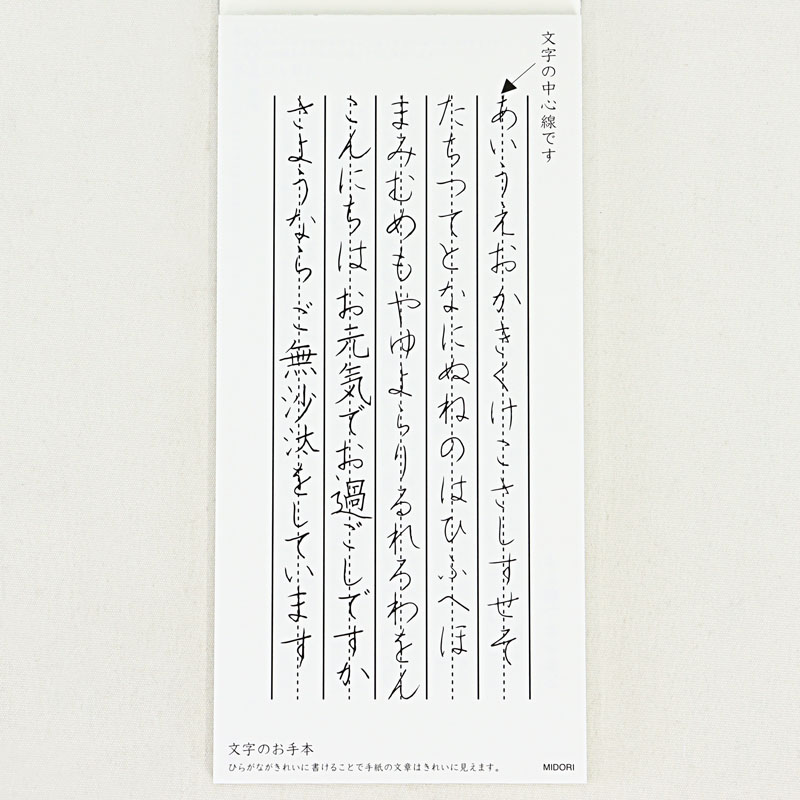 文字の中心線です
あいうえおかきくけこさしすせそ
たちつてとなにぬねのはひふへほ
まみむめもやゆよらりるれろわをん
こんにちはお元気でお過ごしですか
さようならご無沙汰をしています
文字のお手本
ひらがながきれいに書けることで手紙の文章はきれいに見えます。
MIDORI